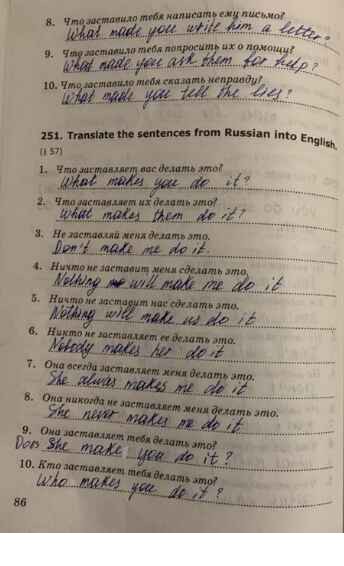 8. Что заставило тебя написать ему письмо?
What made you write him a letter?
9. Что заставило тебя попросить их о помощи?
What made you ask them for help?
10. Что заставило тебя сказать неправду?
What made you tell the lies?
251. Translate the sentences from Russian into English.
(§ 57)
1. Что заставляет вас делать это?
What makes you do it?
2. Что заставляет их делать это?
What makes them do it?
3. Не заставляй меня делать это.
Don't make me do it.
4. Ничто не заставит меня сделать это.
Nothing will make me do it
5. Ничто не заставит нас сделать это.
Nothing will make us do it
6. Никто не заставляет ее делать это.
Nobody makes her do it
7. Она всегда заставляет меня делать это.
She always makes me do it
8. Она никогда не заставляет меня делать это.
She never makes me do it
9. Она заставляет тебя делать это?
Does She make you do it?
10. Кто заставляет тебя делать это?
Who makes you do it?
86